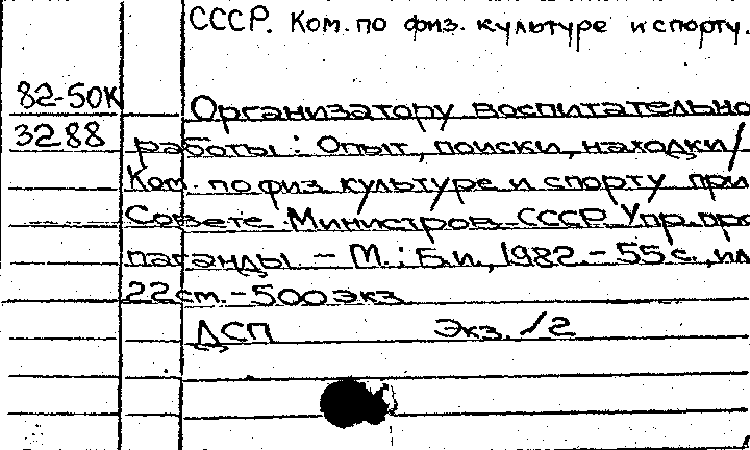 СССР. Ком. по физ. культуре и спорту.
82-50К
Организатору воспитательно
3288
работы: Опыт, поиски, находки /
Ком. по физ. культуре и спорту при
Совете Министров СССР. Упр. про
паганды. - М.: Б.и., 1982. - 55 с., ил
22 см. - 500 экз
ДСП Экз. /2